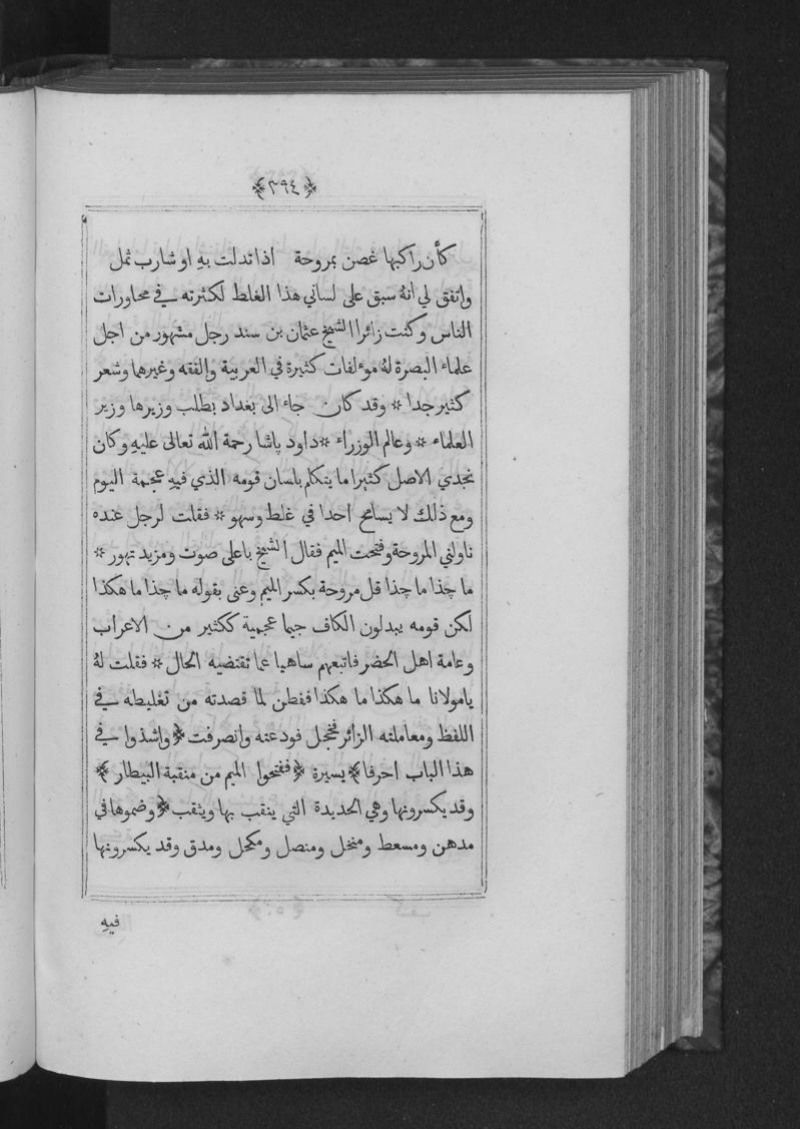 ﴿٣٩٤﴾
كأن راكبها غصن بمروحة اذا تدلت بهِ او شارب ثمل
واتفق لي انهُ سبق على لساني هذا الغلط لكثرته في محاورات
الناس وكنت زائرا الشيخ عثمان بن سند رجل مشهور من اجل
علماء البصرة لهُ موءلفات كثيرة في العربية والفقه وغيرهما وشعر
كثير جدا * وقد كان جاء الى بغداد بطلب وزيرها وزير
العلماء * وعالم الوزراء * داود پاشا رحمة الله تعالى عليهِ وكان
نجدي الاصل كثيرا ما يتكلم بلسان قومه الذي فيهِ عجمة اليوم
ومع ذلك لا يسامح احدا في غلط وسهو * فقلت لرجل عنده
ناولني المروحة وفتحت الميم فقال الشيخ باعلى صوت ومزيد تهور *
ما چذا ما چذا قل مروحة بكسر الميم وعنى بقوله ما چذا ما هكذا
لكن قومه يبدلون الكاف جيما عجمية ككثير من الاعراب
وعامة اهل الحضر فاتبعهم ساهيا عما تقتضيه الحال * فقلت لهُ
يا مولانا ما هكذا ما هكذا ففطن لما قصدته من تغليطه في
اللفظ ومعاملته الزائر فخجل فودعته وانصرفت ﴿واشذوا في
هذا الباب احرفا﴾ يسيرة ﴿ففتحوا الميم من منقبة البيطار﴾
وقد يكسرونها وهي الحديدة التي ينقب بها ويثقب ﴿وضموها في
مدهن ومسعط ومنخل ومنصل ومكحل ومدق وقد يكسرونها
فيهِ